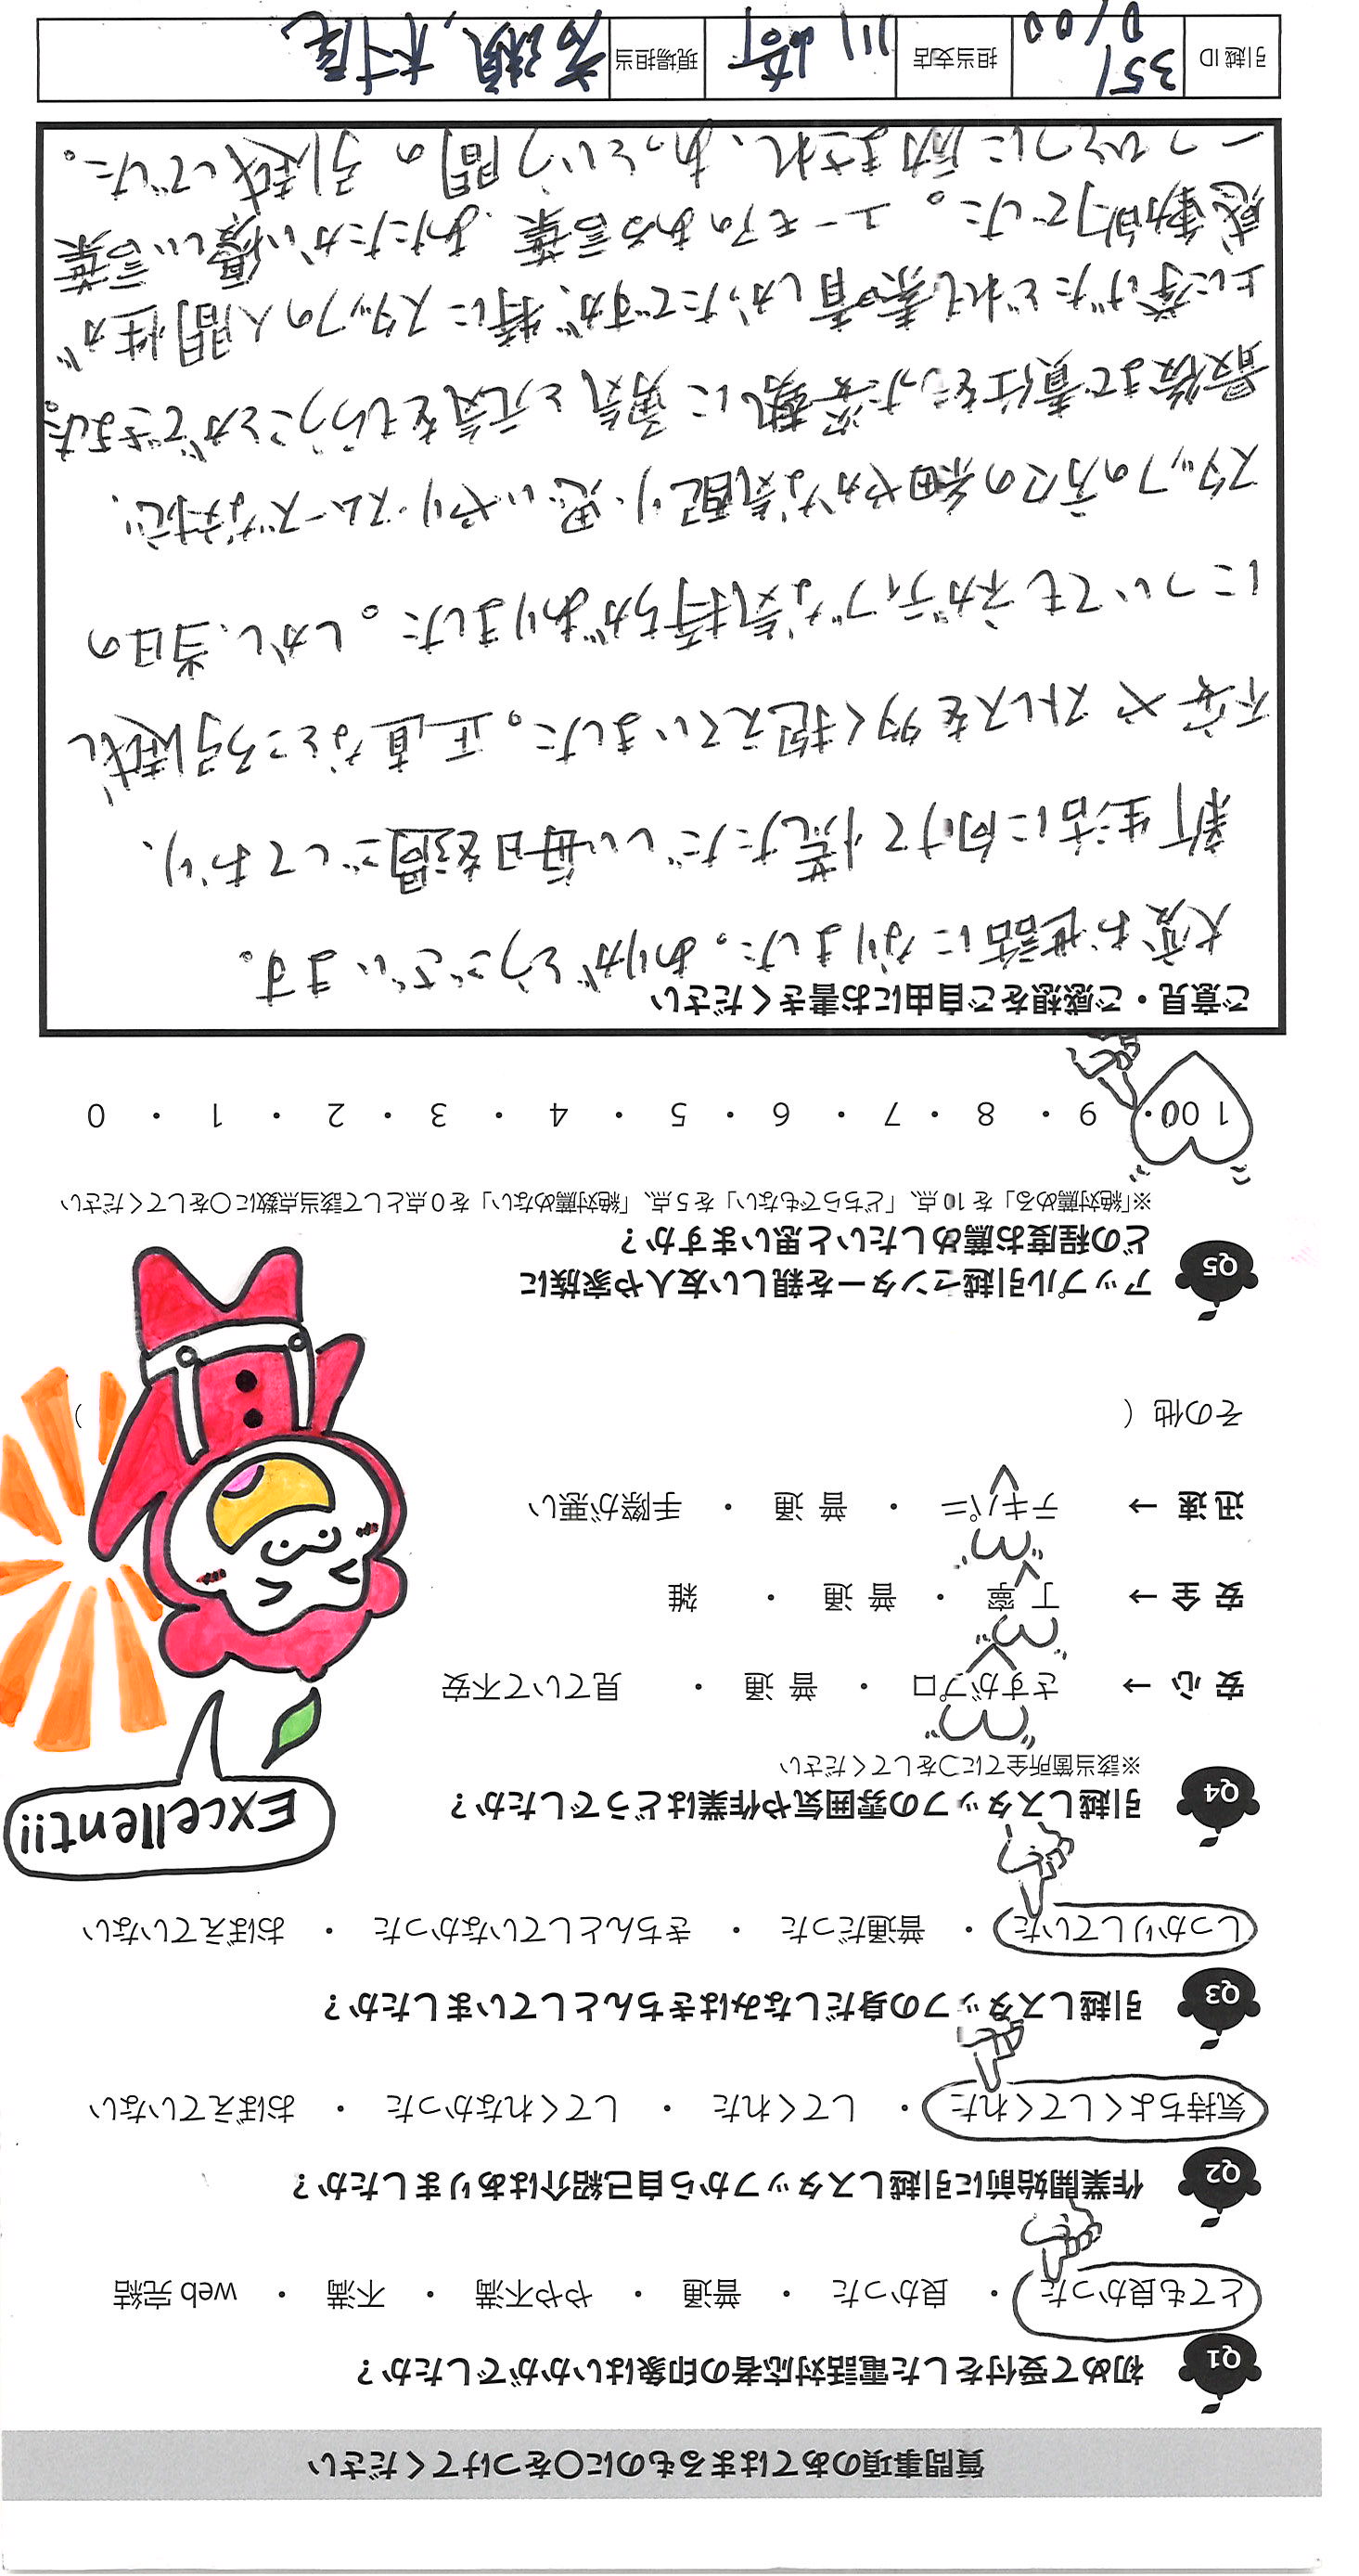 質問事項のあてはまるものに〇をつけてください
Q1 初めて受付をした電話対応者の印象はいかがでしたか？
とても良かった ・ 良かった ・ 普通 ・ やや不満 ・ 不満 ・ web 完結
Q2 作業開始前に引越しスタッフから自己紹介はありましたか？
気持ちよくしてくれた ・ してくれた ・ してくれなかった ・ おぼえていない
Q3 引越しスタッフの身だしなみはきちんとしていましたか？
しっかりしていた ・ 普通だった ・ きちんとしていなかった ・ おぼえていない
Q4 引越しスタッフの雰囲気や作業はどうでしたか？
※該当箇所全てに〇をしてください
Excellent!!
安 心 → さすがプロ ・ 普 通 ・ 見ていて不安
安 全 → 丁 寧 ・ 普 通 ・ 雑
迅 速 → テキパキ ・ 普 通 ・ 手際が悪い
その他（ ）
Q5 アップル引越センターを親しい友人や家族に
どの程度お薦めしたいと思いますか？
※「絶対薦める」を 10 点、「どちらでもない」を 5 点、「絶対薦めない」を 0 点として該当点数に〇をしてください
100 ・ 9 ・ 8 ・ 7 ・ 6 ・ 5 ・ 4 ・ 3 ・ 2 ・ 1 ・ 0
ご意見・ご感想をご自由にお書きください
大変お世話になりました。ありがとうございます。
新生活に向けて慌ただしい毎日を過ごしており、
不安やストレスを多く抱えていました。正直なところ引越し
についてもネガティブな気持ちがありました。しかし、当日の
スタッフの方々の細やかな気配り、思いやり、スムーズな対応、
最後まで責任をもった姿勢に勇気と元気をもらうことができました。
上に挙げたどれも素晴しかったですが、特にスタッフの人間性が
感動的でした。ユーモアのある言葉、あたたかい優しい言葉
一つひとつに励まされ、あっという間の引越しでした。
引越 ID 351 0100 担当支店 川崎 現場担当 村尾